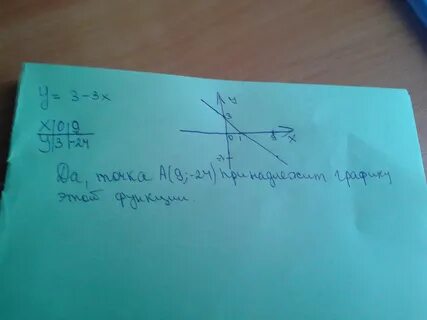 y = 3-3x
x | 0 | 9
y | 3 | -24
y
3
0 1 9 x
Да, точка А(9;-24) принадлежит графику
этой функции.